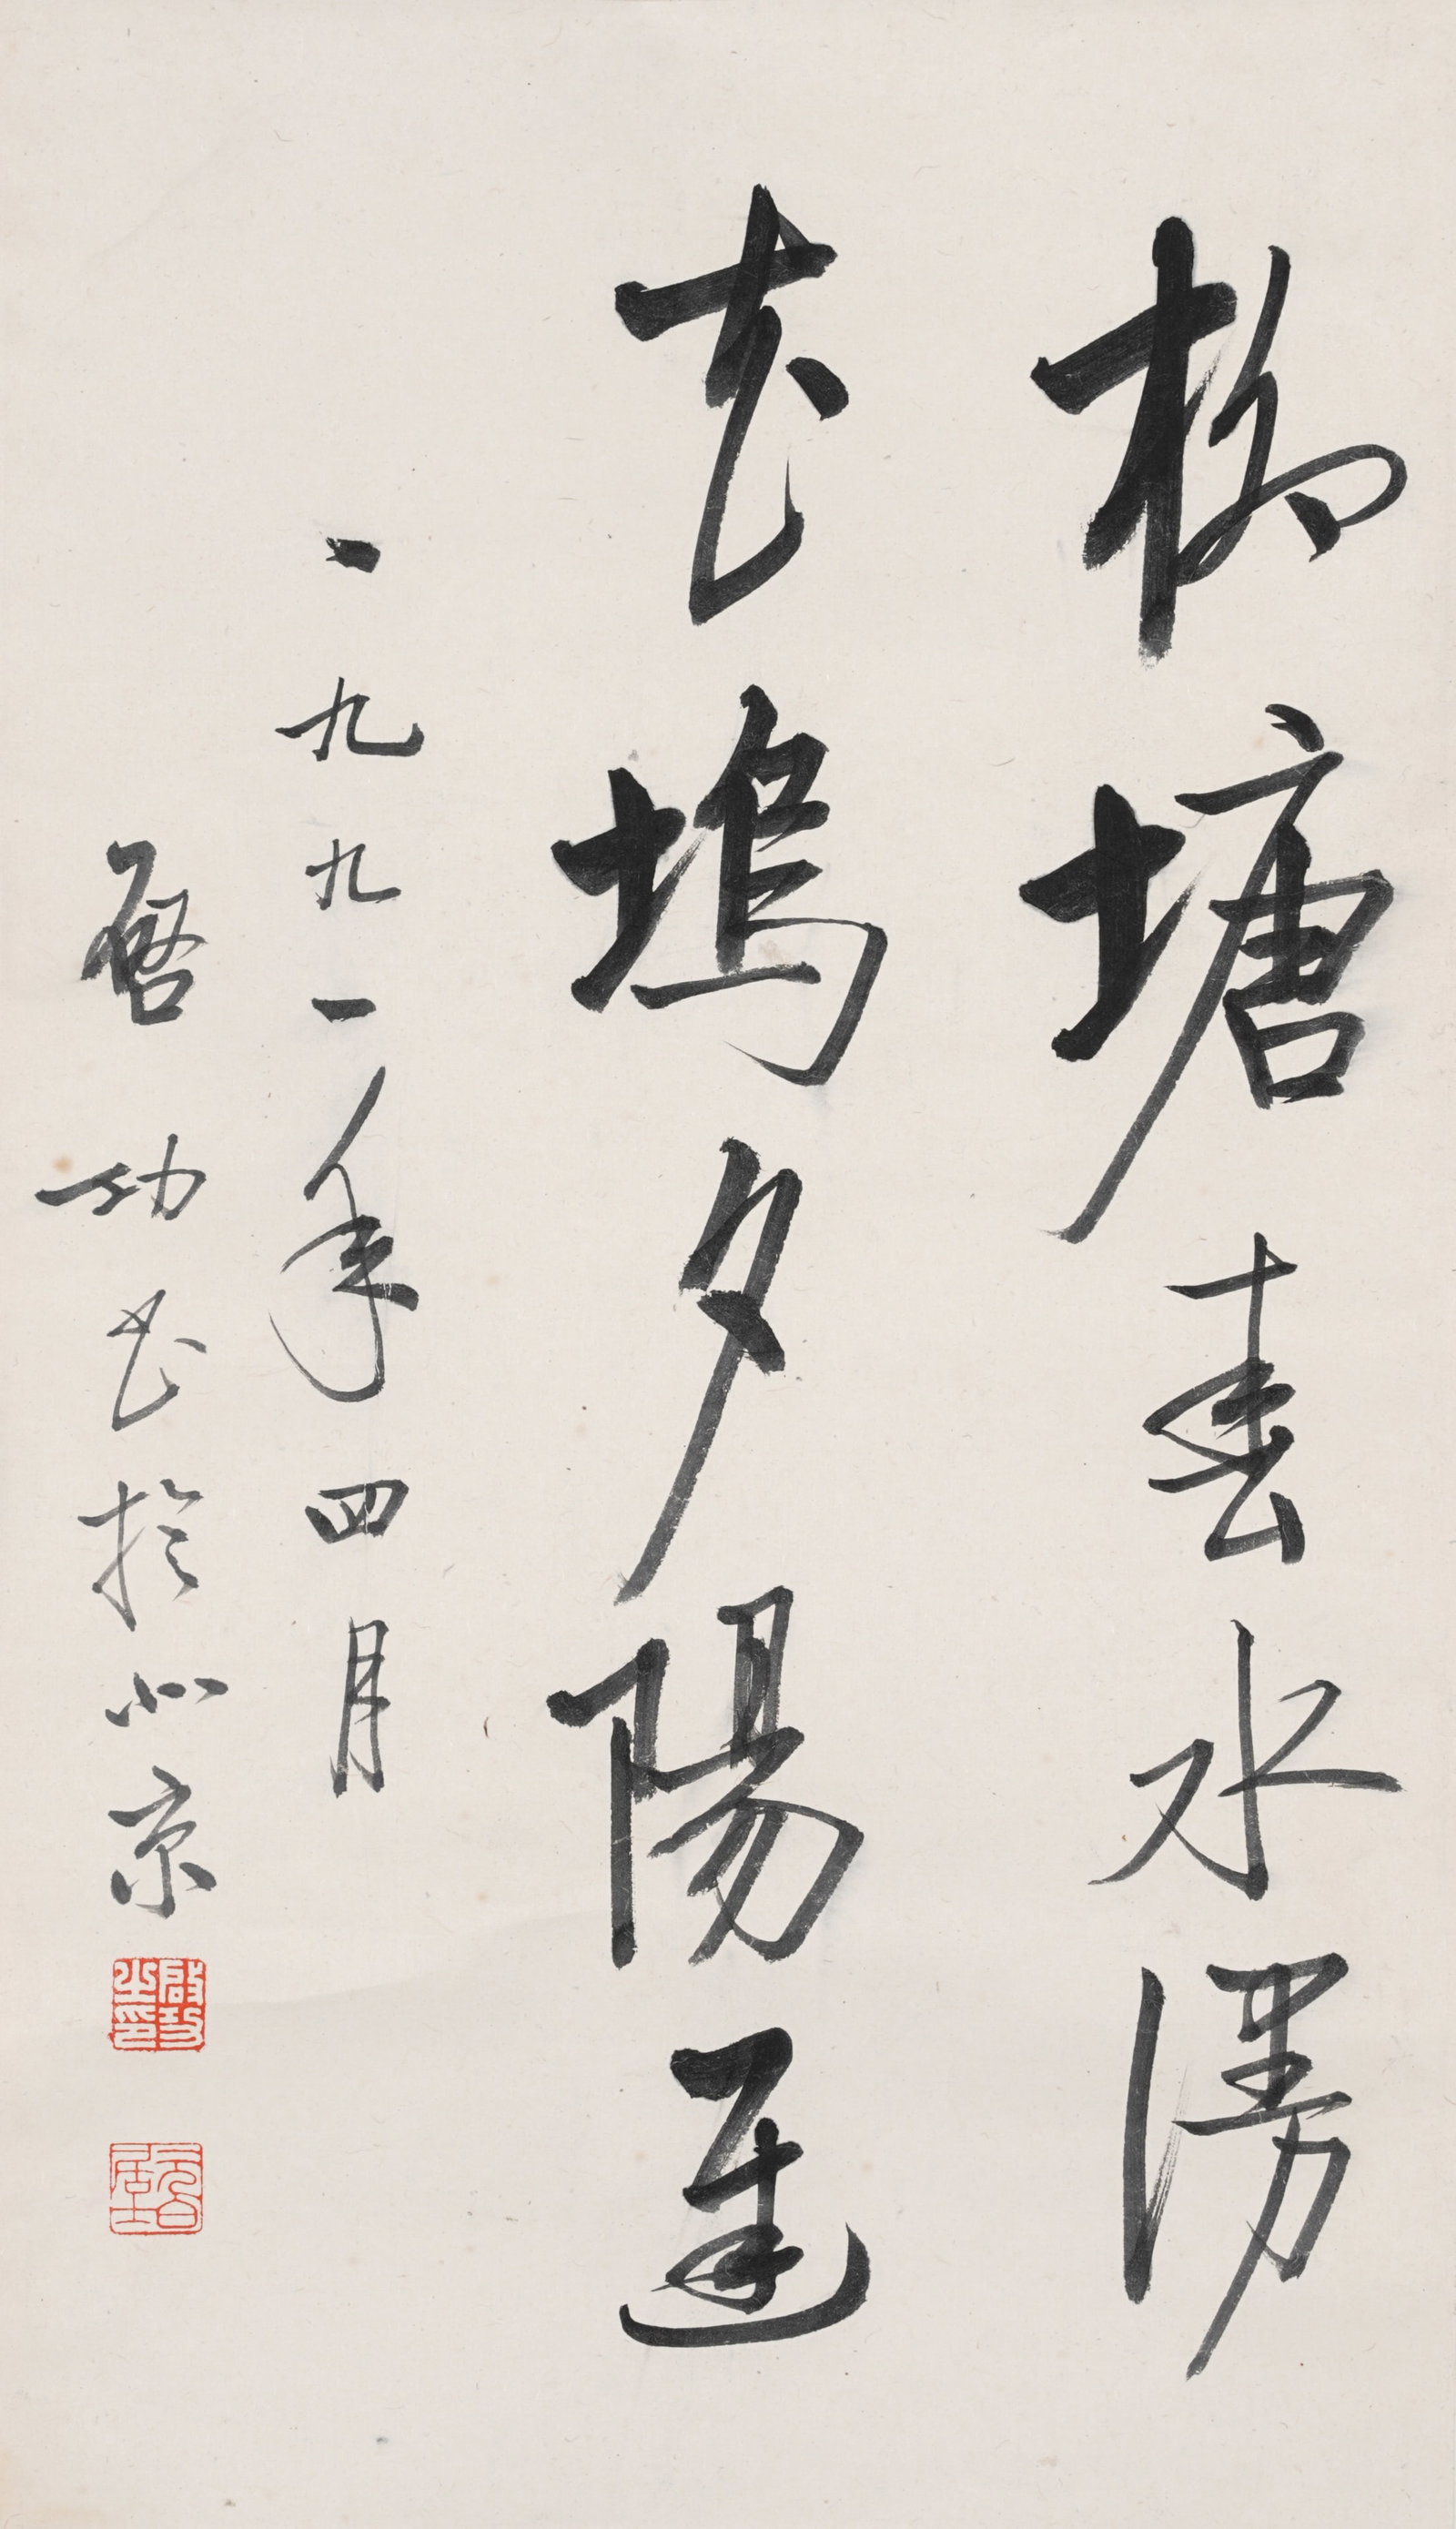 柳塘春水漫
花塢夕陽遲
一九九一年四月
啓功書於北京
啟功之印
元白居士